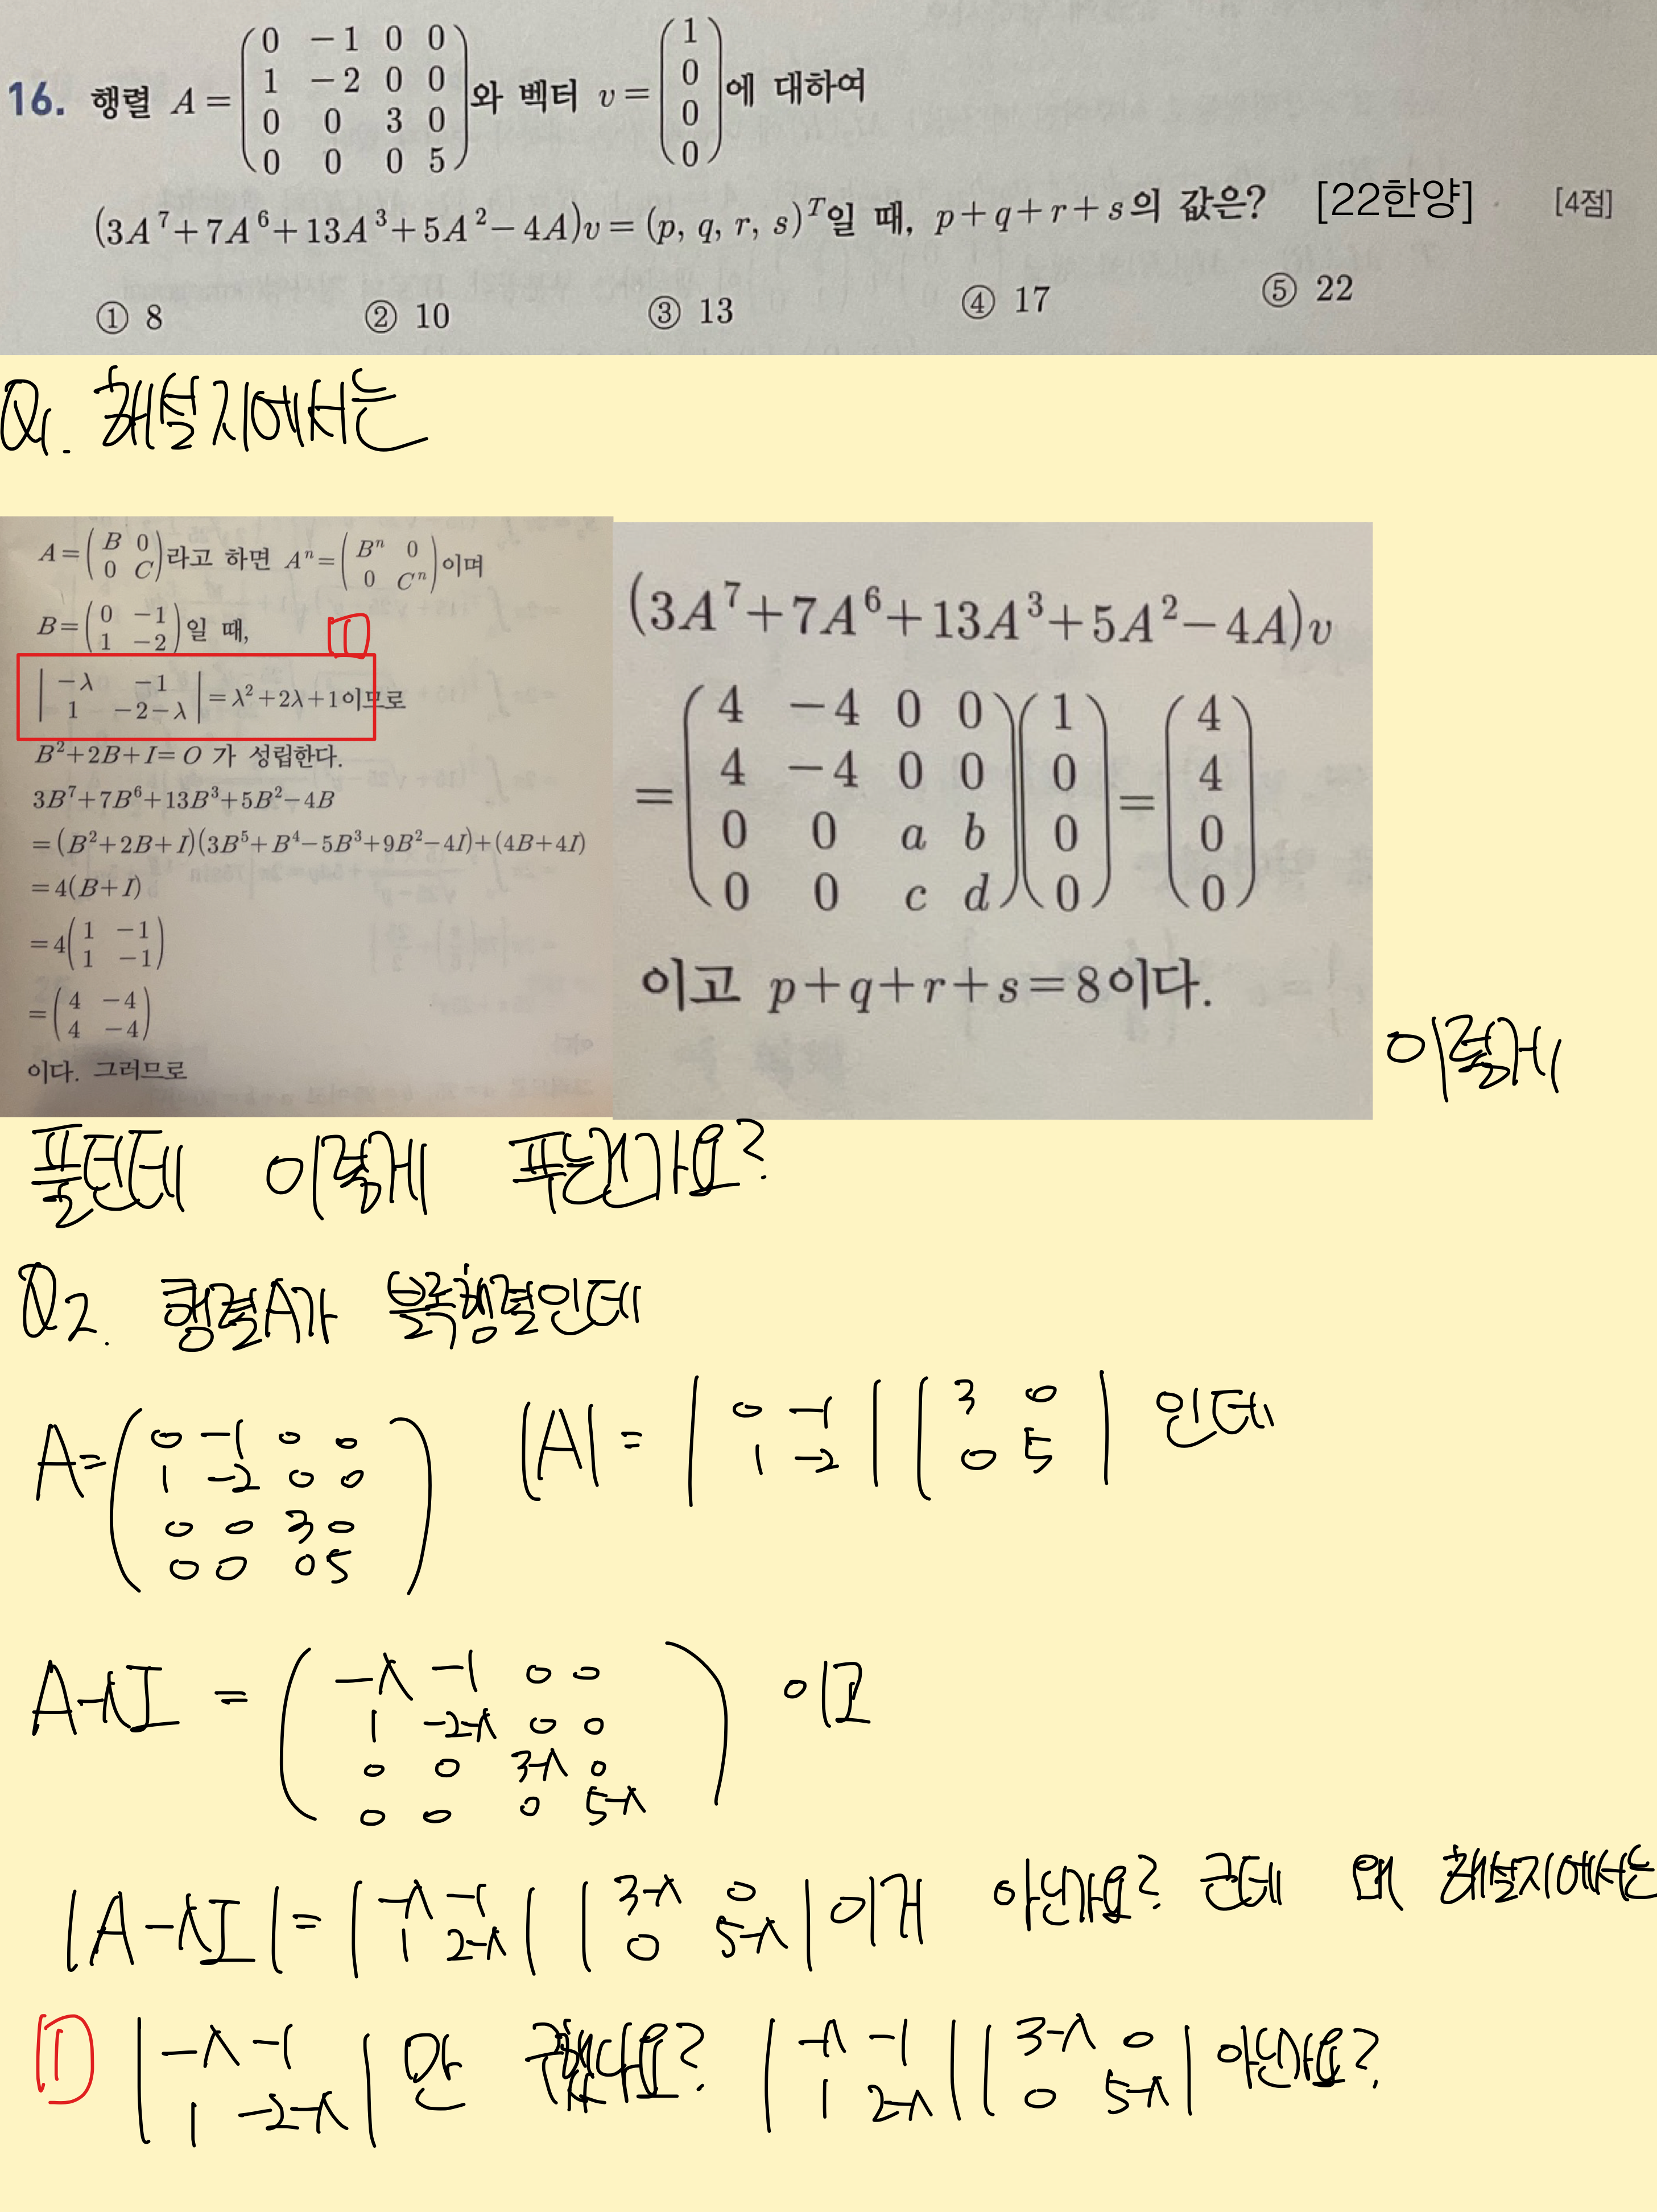 16. 행렬 A = ( 0 -1 0 0 / 1 -2 0 0 / 0 0 3 0 / 0 0 0 5 ) 와 벡터 v = ( 1 / 0 / 0 / 0 ) 에 대하여
(3A⁷+7A⁶+13A³+5A²-4A)v = (p, q, r, s)ᵀ일 때, p+q+r+s의 값은? [22한양] [4점]
① 8 ② 10 ③ 13 ④ 17 ⑤ 22
Q1. 해설지에서는
A = ( B 0 / 0 C ) 라고 하면 Aⁿ = ( Bⁿ 0 / 0 Cⁿ ) 이며
B = ( 0 -1 / 1 -2 ) 일 때,
①
| -λ -1 / 1 -2-λ | = λ²+2λ+1이므로
B²+2B+I=O 가 성립한다.
3B⁷+7B⁶+13B³+5B²-4B
=(B²+2B+I)(3B⁵+B⁴-5B³+9B²-4I)+(4B+4I)
=4(B+I)
=4( 1 -1 / 1 -1 )
=( 4 -4 / 4 -4 )
이다. 그러므로
(3A⁷+7A⁶+13A³+5A²-4A)v
= ( 4 -4 0 0 / 4 -4 0 0 / 0 0 a b / 0 0 c d ) ( 1 / 0 / 0 / 0 ) = ( 4 / 4 / 0 / 0 )
이고 p+q+r+s=8이다.
이렇게
풀던데 이렇게 푸는건가요?
Q2. 행렬A가 블록행렬인데
A= ( 0 -1 0 0 / 1 -2 0 0 / 0 0 3 0 / 0 0 0 5 ) |A| = | 0 -1 / 1 -2 | | 3 0 / 0 5 | 인데
A-λI = ( -λ -1 0 0 / 1 -2-λ 0 0 / 0 0 3-λ 0 / 0 0 0 5-λ ) 이고
|A-λI| = | -λ -1 / 1 2-λ | | 3-λ 0 / 0 5-λ | 이거 아닌가요? 근데 왜 해설지에서는
① | -λ -1 / 1 -2-λ | 만 구했나요? | -λ -1 / 1 2-λ | | 3-λ 0 / 0 5-λ | 아닌가요?